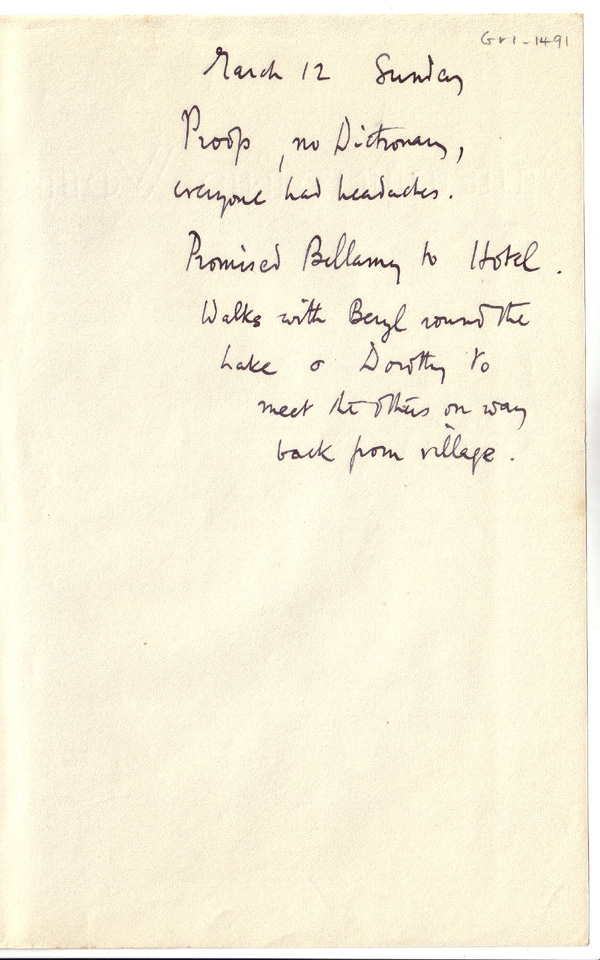 Gr1-1491
March 12 Sunday
Proofs, no Dictionary,
everyone had headaches.
Promised Bellamy to Hotel.
Walks with Beryl round the
Lake & Dorothy to
meet the others on way
back from village.